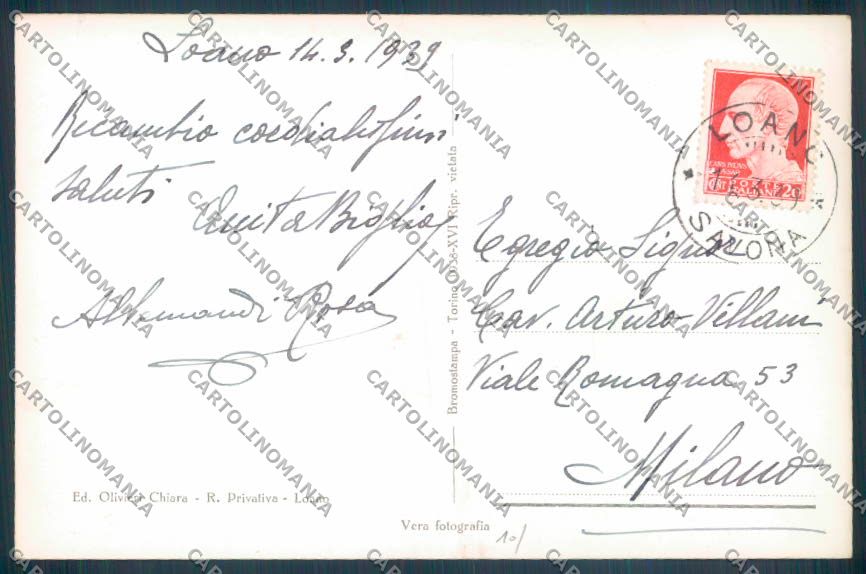 Loano 14.3.1939
Ricambio cordialissimi
saluti
Anita
Rosa
Ed. Olivieri Chiara - R. Privativa - Loano
Vera fotografia
Bromostampa - Torino 1938-XVI Ripr. vietata
LOANO
SAVONA
POSTE
ITALIANE
CENT 20
Egregio Signor
Cav. Arturo Villani
Viale Romagna 53
Milano
10/
CARTOLINOMANIA